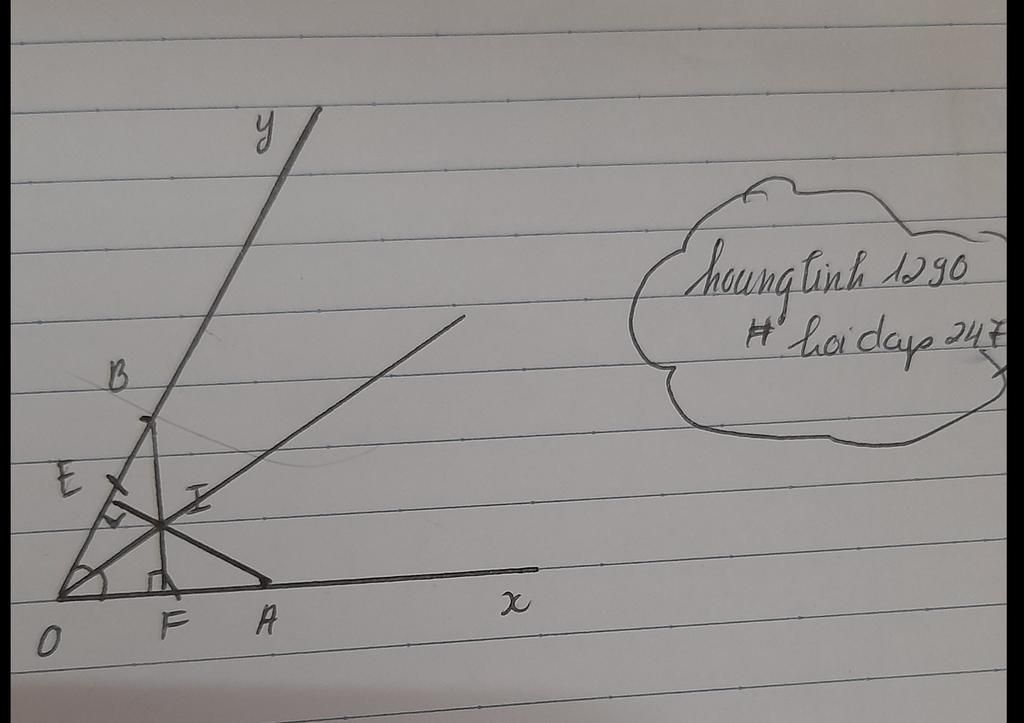 y
hoanglinh 1290
# hoidap 247
B
E
I
O
F
A
x